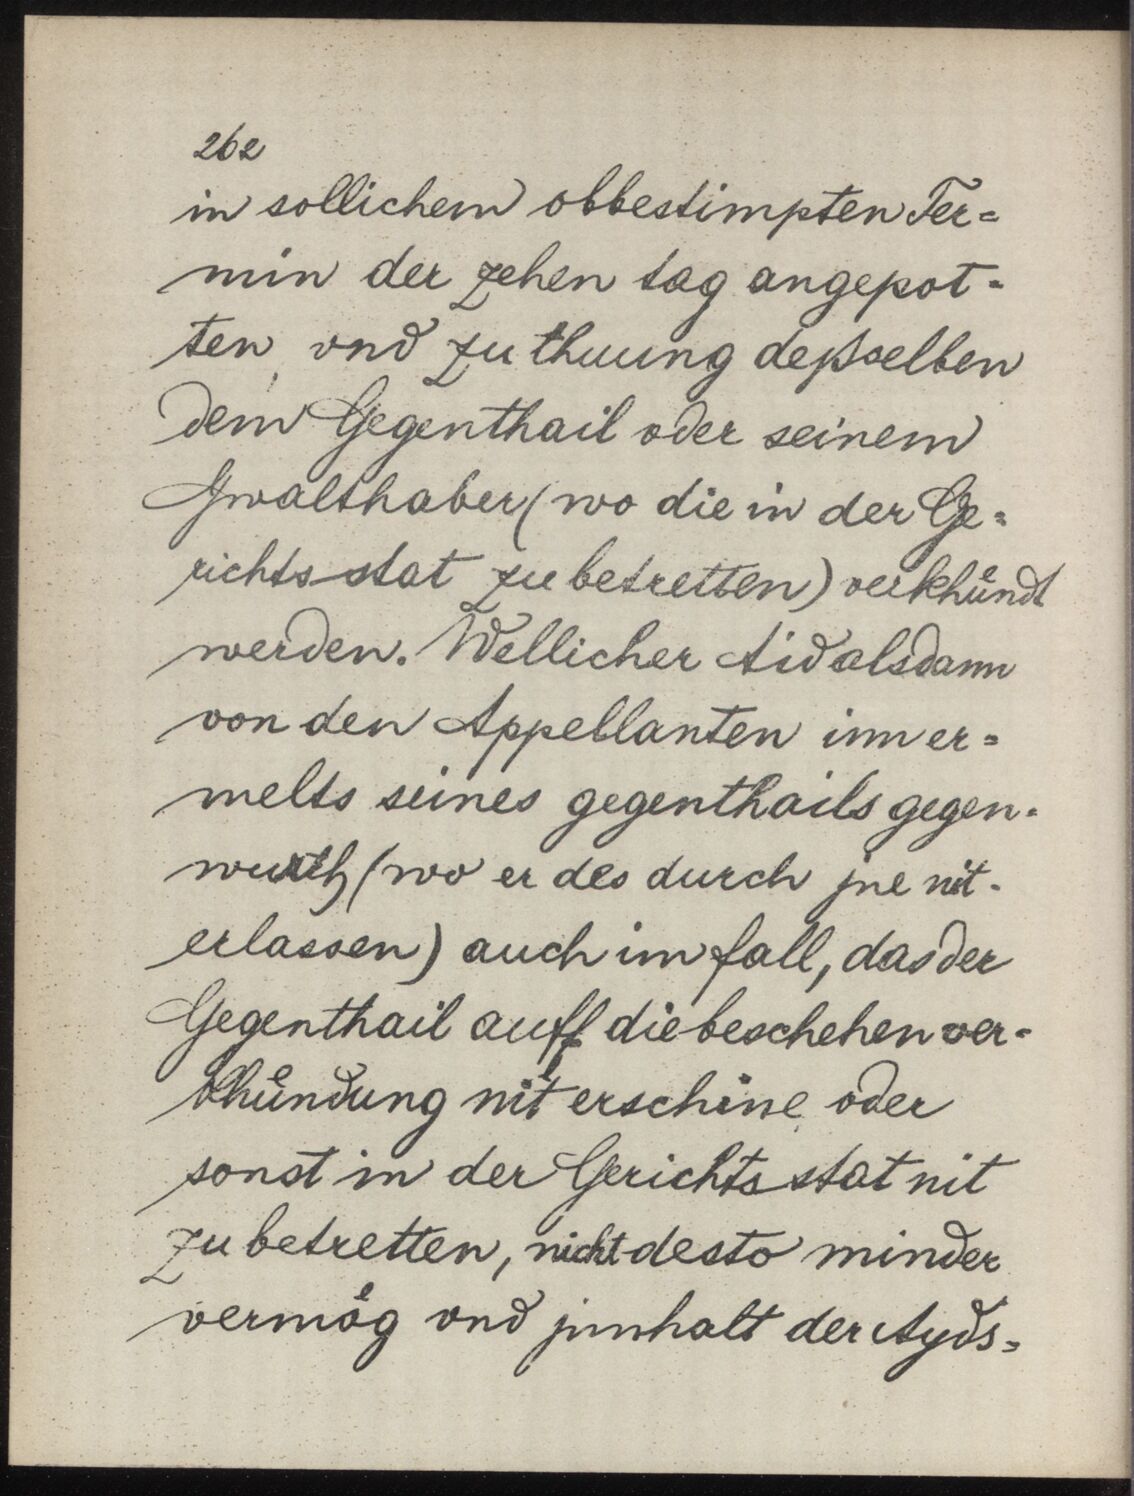 262
in sollichem obbestimpten Ter=
min der zehen tag angepot=
ten, vnd zu thuung deßselben
dem Gegenthail oder seinem
Gwalthaber (wo die in der Ge=
richts stat zu betretten) verkhündt
werden. Wellicher Aid alsdann
von den Appellanten inn er=
melts seines gegenthails gegen=
wurth (wo er des durch jne nit=
erlassen) auch im fall, das der
Gegenthail auff die beschehen ver=
khündung nit erschine oder
sonst in der Gerichts stat nit
zu betretten, nicht desto minder
vermög vnd jnnhalt der Ayds=